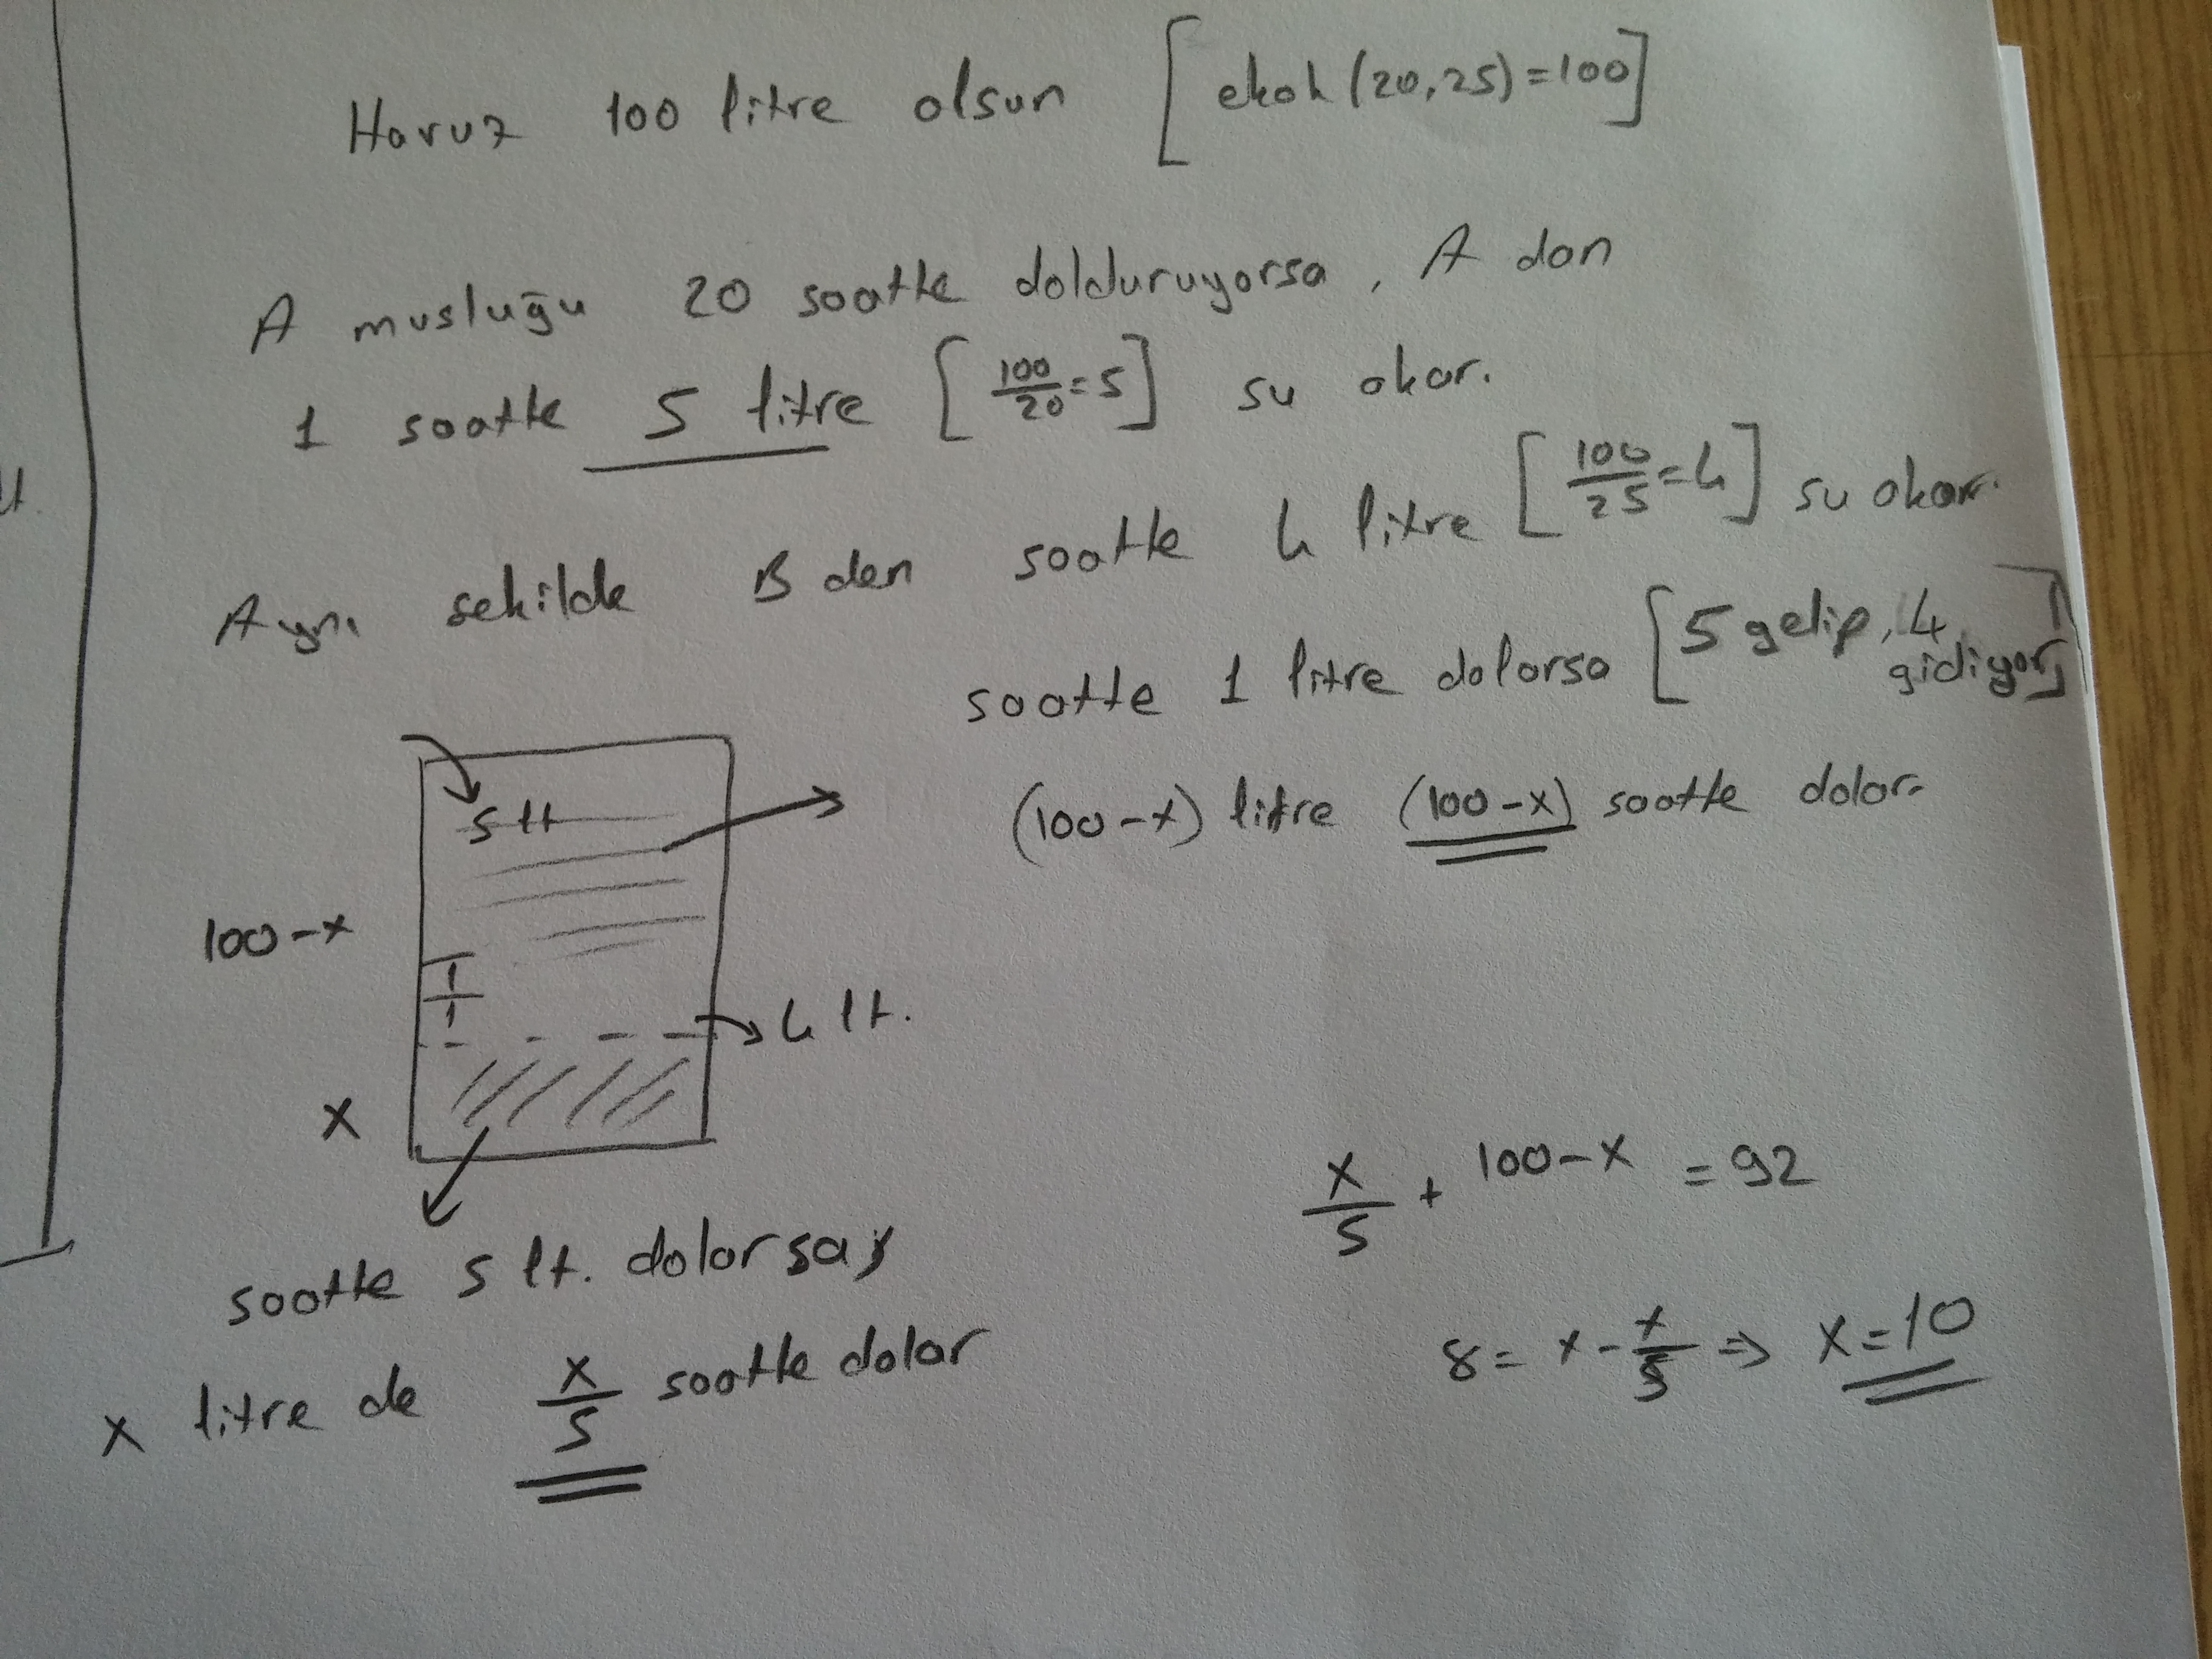 Havuz 100 litre olsun [ekok (20,25)=100]
A musluğu 20 saatte dolduruyorsa, A dan
1 saatte 5 litre [100/20=5] su akar.
Aynı şekilde B den saatte 4 litre [100/25=4] su akar.
saatte 1 litre dolarsa [5 gelip, 4 gidiyor]
(100-x) litre (100-x) saatte dolar.
5 lt
100-x
1
1
4 lt.
x
saatte 5 lt. dolarsa,
x litre de x/5 saatte dolar
x/5 + 100-x = 92
8 = x - x/5 ⇒ x=10